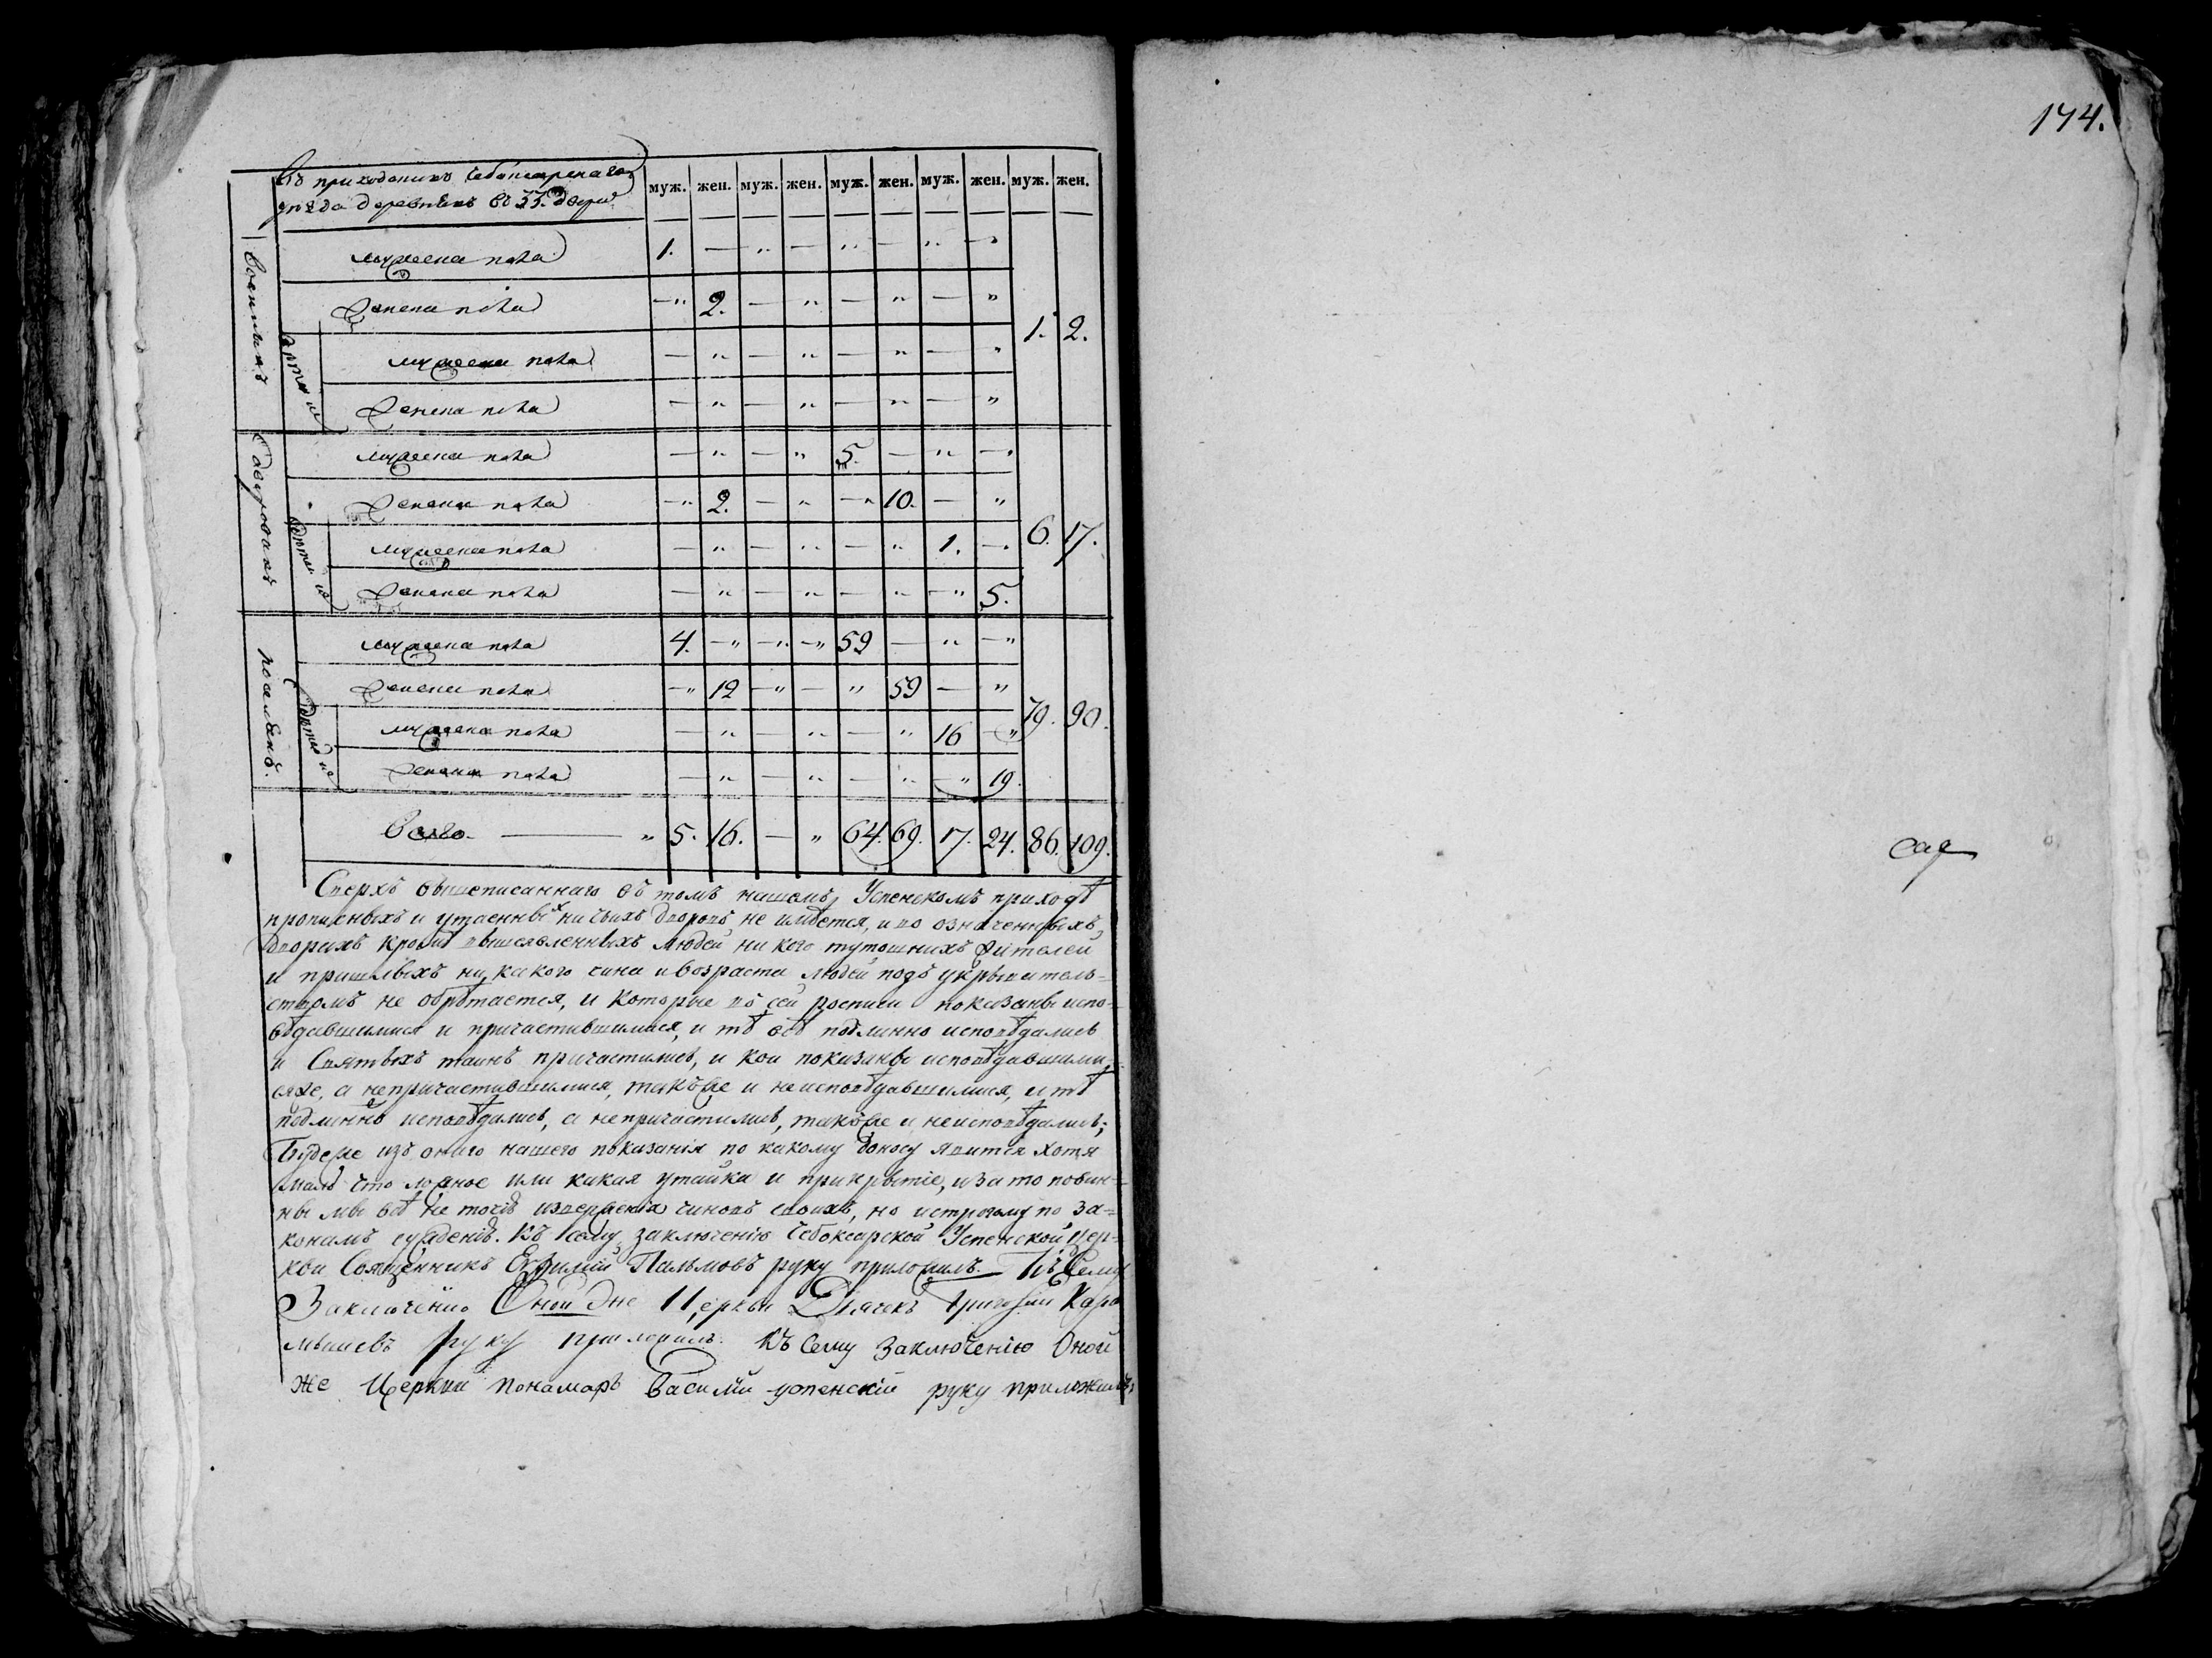 174.
Въ приходскихъ Чебоксарскаго
уезда деревняхъ во 33. двори
муж. жен. муж. жен. муж. жен. муж. жен. муж. жен.
Военныхъ
мужеска пола 1. — „ — „ — „ —„
женска пола —„ 2. — „ — „ — „
1. 2.
дети их
мужеска пола — „ — „ — „ — „
женска пола — „ — „ — „ — „
мужеска пола — „ — „ 5. — „ —„
женска пола —„ 2. — „ —„ 10. — „
6. 17.
дети их
мужеска пола — „ — „ — „ 1. —„
женска пола — „ — „ — „ —„ 5.
поселянъ.
мужеска пола 4. —„ —„ —„ 59 — „ —„
женска пола —„ 12 —„ — „ 59 — „
79. 90.
дети их
мужеска пола — „ — „ — „ 16 —„
женска пола — „ — „ — „ —„ 19.
Всего. — „ 5. 16. — „ 64. 69. 17. 24. 86. 109.
Сверхъ вышеписаннаго въ томъ нашемъ Успенскомъ приходѣ
прописныхъ и утаенныхъ ни чьихъ дворовъ не имѣется, и во означенныхъ
дворехъ кромѣ вышеявленныхъ людей ни кого тутошнихъ жителей
и пришлыхъ ни какого чина и возраста людей подъ укрывитель=
ствомъ не обрѣтается, и которые въ сей росписи показаны испо=
вѣдавшимися и причастившимися, и тѣ всѣ подлинно исповѣдались
и Святыхъ таинъ причастились, и кои показаны исповѣдавшими=
сяже, а непричастившимися, такъже и неисповѣдавшимися, и тѣ
подлинно исповѣдались, а непричастились, такъже и неисповѣдались;
Будеже изъ онаго нашего показанія по какому доносу явится хотя
мало что ложное или какая утайка и прикрытіе, и за то повин=
ны мы всѣ не точію изверженія чиновъ своихъ, но и строгому по за=
конамъ сужденію. Къ сему заключенію Чебоксарской Успенской цер=
кви Священникъ Евфимій Пальмовъ руку приложилъ. Къ Сему
Заключенію Оной же Церкви Дьячекъ Григорий Кара
мышевъ руку приложилъ. Къ Сему Заключенію Оной
же Церкви пономаръ Василій успенскій руку приложилъ